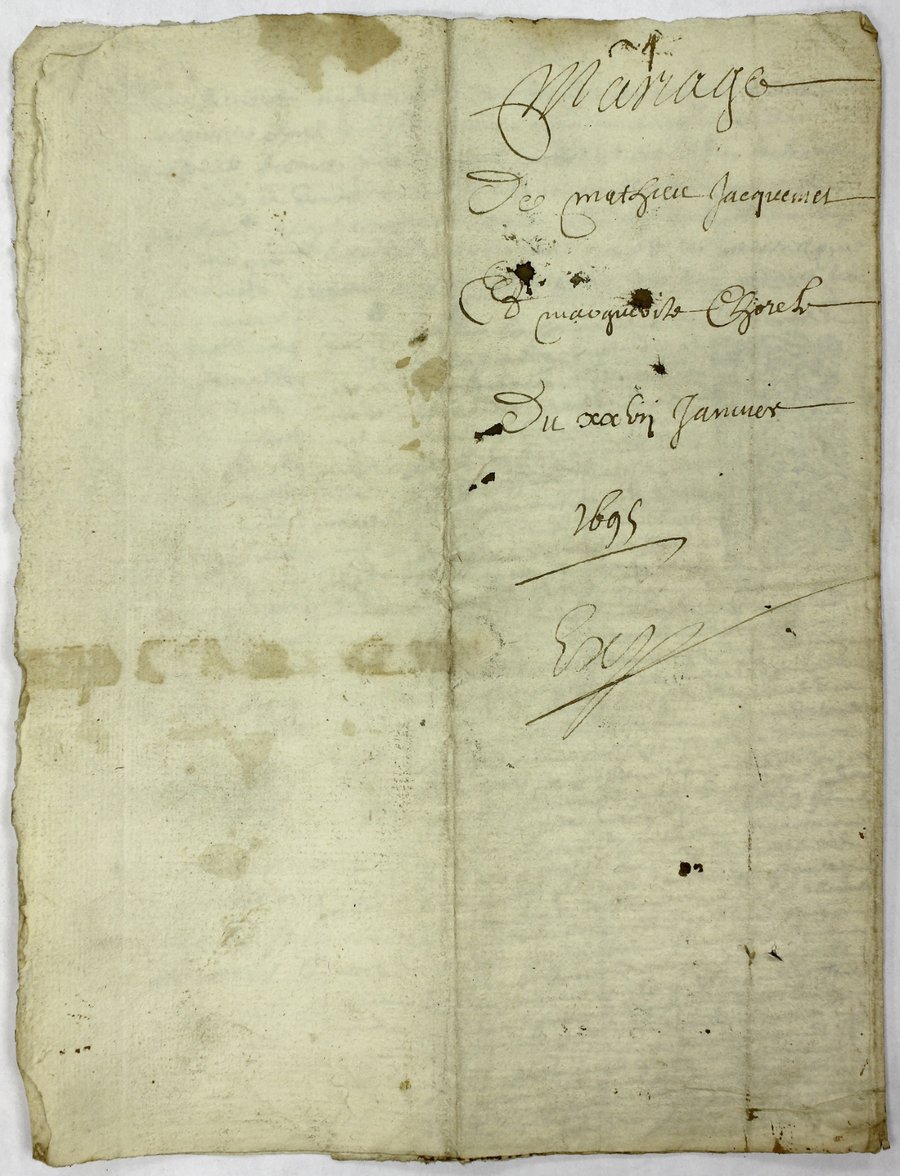 Mariage
De mathieu Jacquemet
Et marguerite Chorel
Du xxvij Janvier
1695